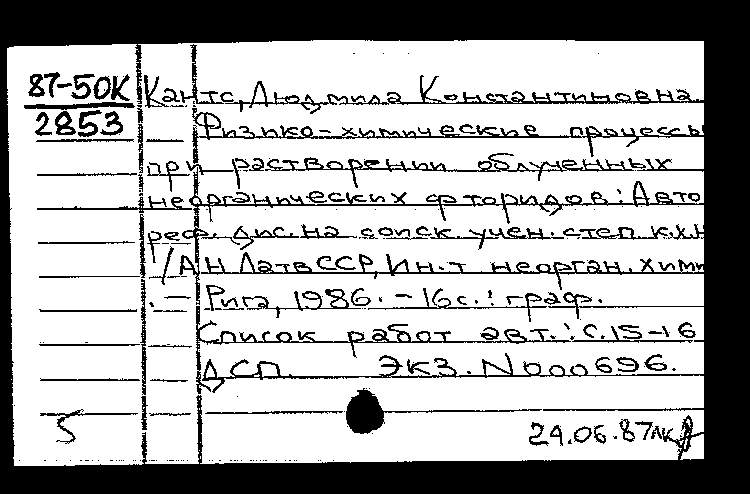 87-50К Кантс, Людмила Константиновна.
2853 Физико-химические процессы
при растворении облученных
неорганических фторидов: Авто
реф. дис. на соиск. учен. степ. к.х.н
/АН ЛатвССР, Ин-т неорган. хими
. — Рига, 1986. - 16 с.: граф.
Список работ авт.: С. 15-16
ДСП. ЭКЗ. N 000696.
5 24.06.87